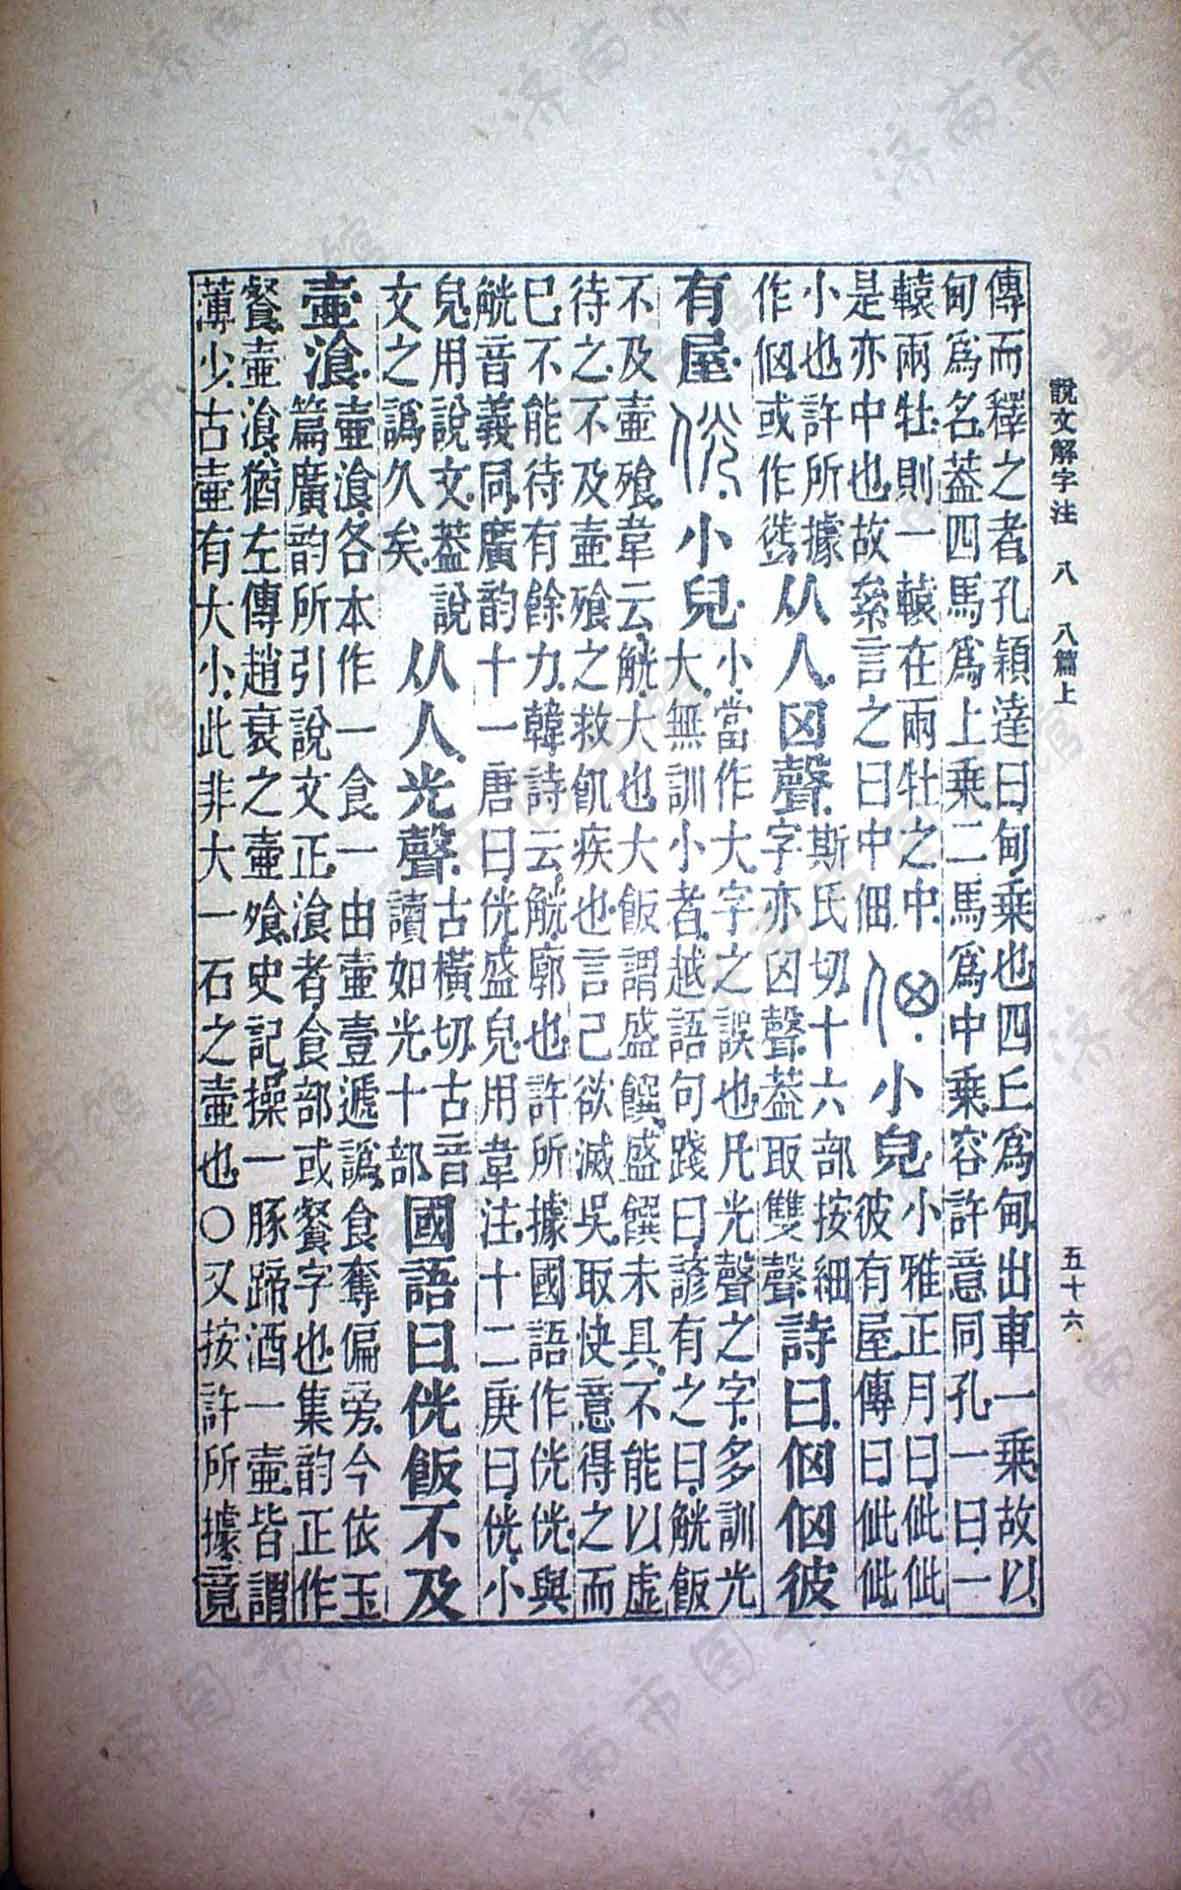 說文解字注 八 八篇上 五十六
傳而釋之者孔穎達曰甸乘也四丘爲甸出車一乘故以
甸爲名葢四馬爲上乘二馬爲中乘容許意同孔一曰一
轅兩牡則一轅在兩牡之中
是亦中也故絫言之曰中佃
小皃
小雅正月曰佌佌
彼有屋傳曰佌佌
小也許所據
作㑋或作㣬
从人囟聲
斯氏切十六部按細
字亦囟聲葢取雙聲
詩曰㑋㑋彼
有屋
侊小皃
小當作大字之誤也凡光聲之字多訓光
大無訓小者越語句踐曰諺有之曰觥飯
不及壷飱韋云觥大也大飯謂盛饌盛饌未具不能以虛
待之不及壷飱之救飢疾也言己欲滅吳取快意得之而
巳不能待有餘力韓詩云觥廓也許所據國語作侊侊與
觥音義同廣韵十一唐曰侊盛皃用韋注十二庚曰侊小
皃用說文葢說
文之譌久矣
从人光聲
古橫切古音
讀如光十部
國語曰侊飯不及
壷湌
壷湌各本作一食一由壷壹遞譌食奪偏旁今依玉
篇廣韵所引說文正湌者食部或餐字也集韵正作
餐壷湌猶左傳趙衰之壷飱史記操一豚蹄酒一壷皆謂
薄少古壷有大小此非大一石之壷也○又按許所據竟